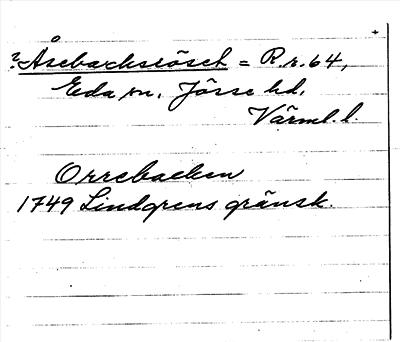 ? Åsebacksröset = R.r. 64,
Eda sn, Jösse hd,
Värml. l.
Orrebacken
1749 Lindgrens gränsk.